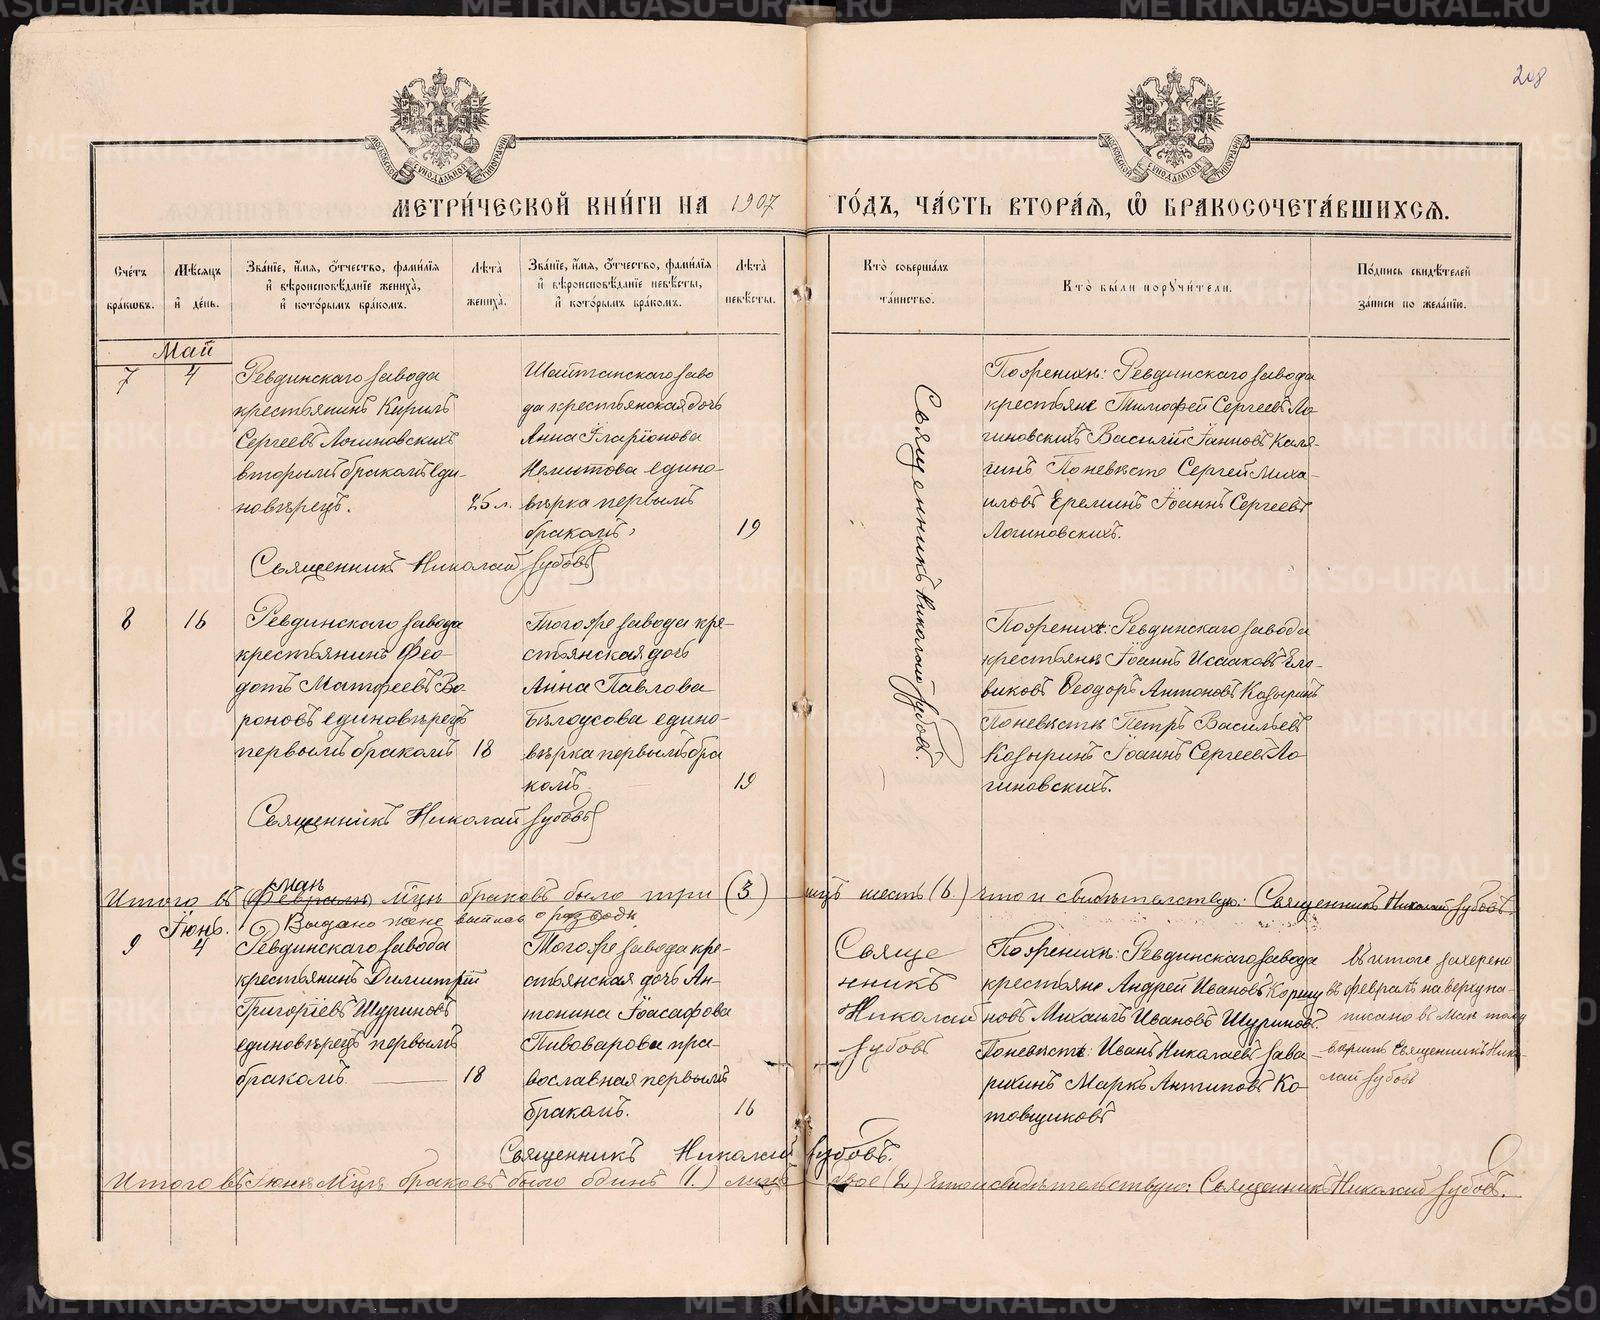 208
МОСКОВСКОЙ СѴНОДАЛЬНОЙ ТИПОГРАФІИ
МОСКОВСКОЙ СѴНОДАЛЬНОЙ ТИПОГРАФІИ
МЕТРИ́ЧЕСКОЙ КНИ́ГИ НА 1907 ГО́ДЪ, ЧА́СТЬ ВТОРА́Я, Ѽ БРАКОСОЧЕТА́ВШИХСЯ.
Сче́тъ бра́кѡвъ.
Мѣ́сяцъ и҆ де́нь.
Зва́нїе, и҆́мя, ѻ҆́тчество, фамѝлїя
и҆ вѣроисповѣ́данїе жениха̀,
и҆ кото́рымъ бра́комъ.
Лѣ́та̀ жениха̀.
Зва́нїе, и҆́мя, ѻ҆́тчество, фамѝлїя
и҆ вѣроисповѣ́данїе невѣ́сты,
и҆ кото́рымъ бра́комъ.
Лѣ́та̀ невѣ́сты.
Кто̀ соверша́лъ та́инство.
Кто̀ бы́ли порꙋчи́тели.
По́дпись свидѣ́телей
за́писи по жела́нїю.
Май
7
4
Ревдинскаго завода
крестьянинъ Кирилъ
Сергеевъ Логиновскихъ
вторымъ бракомъ еди-
новѣрецъ.
25 л.
Шайтанскаго заво
да крестьянская дочь
Анна Іларіонова
едино-
вѣрка первымъ
бракомъ
19
Поженихѣ: Ревдинскаго завода
крестьяне Тимофей Сергеевъ Ло
гиновскихъ Василій Іаннов Каля-
гинъ Поневѣсте Сергей Миха-
иловъ Ереминъ Іоаннъ Сергеевъ
Логиновскихъ.
Священникъ Николай Зубовъ
Священникъ Николай Зубовъ.
8
16
Ревдинскаго завода
крестьянинъ Фео-
дотъ Матфеевъ Во-
роновъ единовѣрецъ
первымъ бракомъ
18
Тогоже завода кре-
стьянская дочь
Анна Павлова
Бѣлоусова едино-
вѣрка первымъ бра
комъ
19
Поженихѣ: Ревдинскаго завода
крестьяне Іоаннъ Исааковъ Ело-
виковъ Феодоръ Антоновъ Козыринъ
Поневѣсте Петръ Васильевъ
Козыринъ Іоаннъ Сергеевъ Ло
гиновскихъ.
Священникъ Николай Зубовъ
маѣ
Итого въ Февралѣ мцѣ браковъ было три (3) лицъ шесть (6.) что и свидѣтельствую: Священникъ Николай Зубовъ.
Выдано жене о разводѣ
Іюнь.
9
4
Ревдинскаго завода
крестьянинъ Димитрій
Григоріевъ Щуриновъ
единовѣрецъ первымъ
бракомъ
18
Тогоже завода кре-
стьянская дочь Ан-
тонина Іоасафова
Пивоварова пра-
вославная первымъ
бракомъ.
16
Священникъ
Николай
Зубовъ
Поженихѣ: Ревдинскаго завода
крестьяне Андрей Ивановъ
новъ Михаилъ Ивановъ Щуриновъ.
Поневѣсте: Иванъ Николаевъ Зава-
рихинъ Маркъ Антиповъ Ко
товщиковъ
въ итоге захерено
въ февралѣ на верху на-
писано въ Маѣ тому
веритъ Священникъ Нико-
лай Зубовъ
Священникъ Николай Зубовъ.
Итого въ Іюнѣ мцѣ браковъ было одинъ (1.) лицъ двое (2.) Что и свидѣтельствую: Священникъ Николай Зубовъ.
METRIKI.GASO-URAL.RU